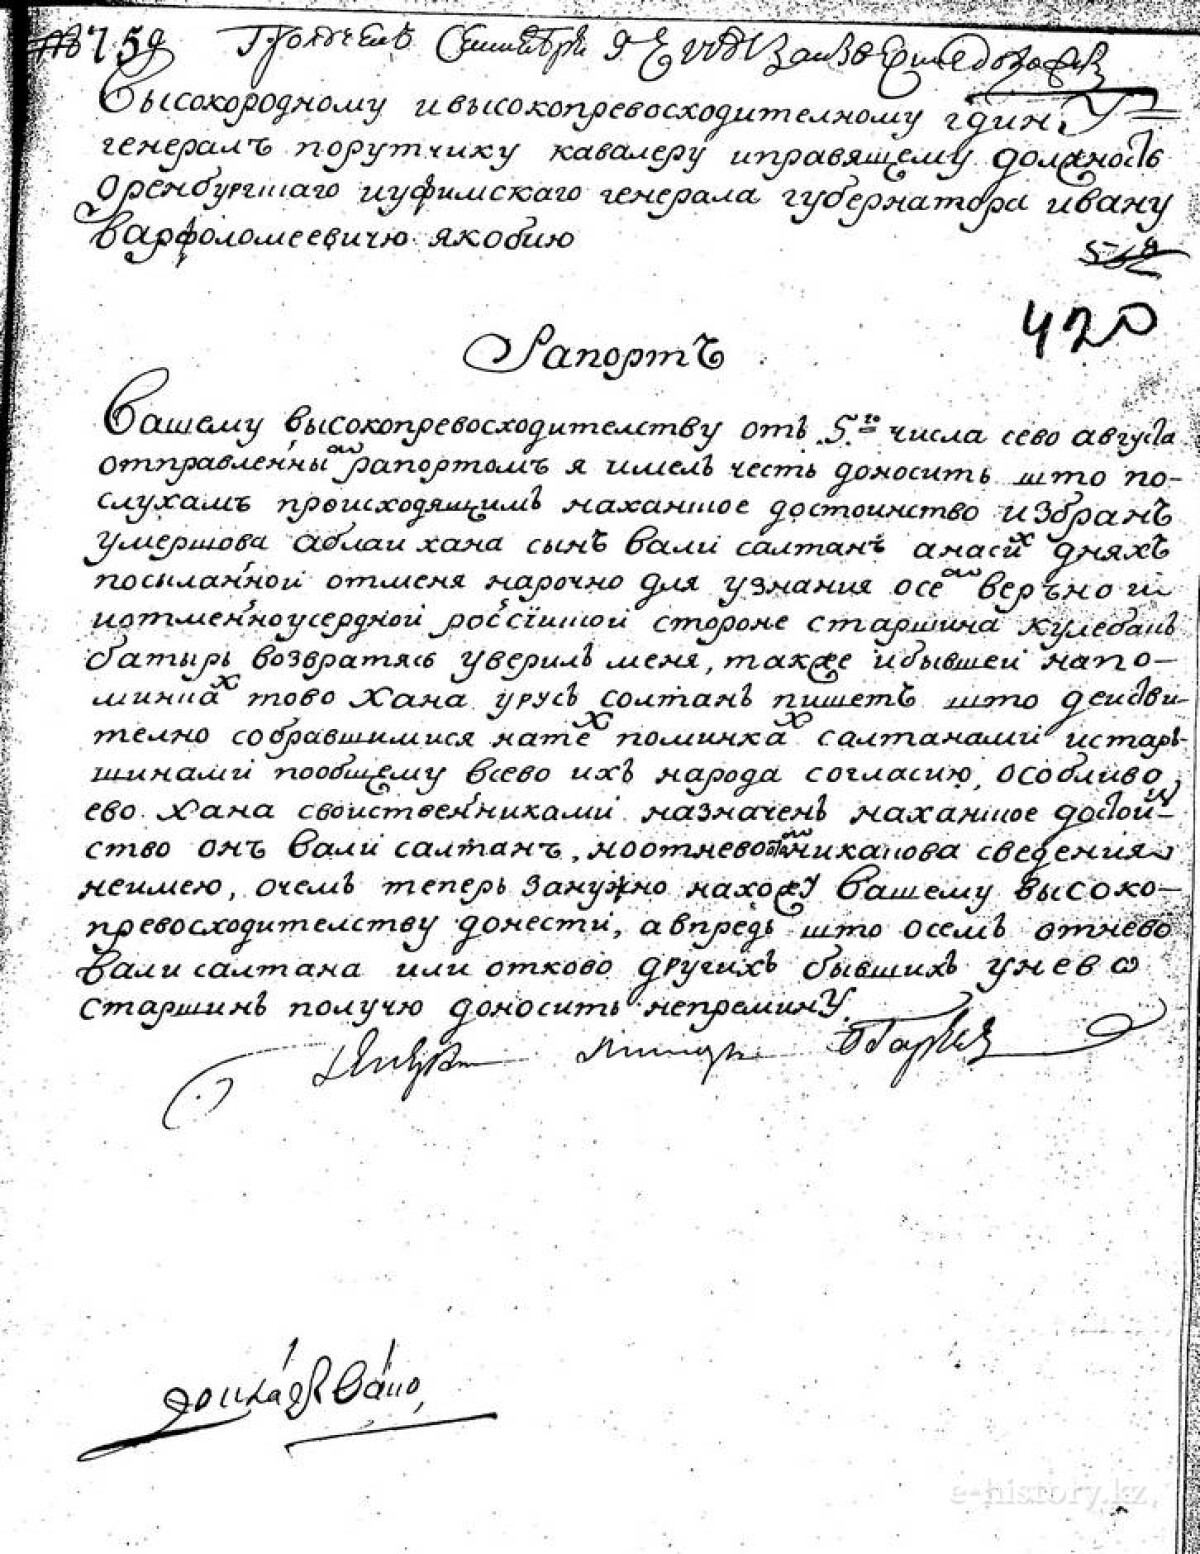 759 Полученъ Сентебря 9
Высокородному и высокопревосходителному гдину
генералъ порутчику кавалеру и правящему должность
Оренбургшаго иуфимскаго генерала губернатора ивану
варфоломеевичю якобию
420
Рапортъ
Вашему высокопревосходителству отъ 5.го числа сево августа
отправленны рапортомъ я имелъ честь доносить што по-
слухамъ происходящимъ наханшое достоинство избранъ
умершова аблаи хана сынъ вали салтанъ анасих дняхъ
посыланной отменя нарочно для узнания осем верьно и
иотменноусердной россiишой стороне старшина кулебакъ
батырь возвратясь уверилъ меня, также ибывшей напо-
минках тово хана урусъ солтанъ пишетъ што деистви-
телно собравшимися натех поминках салтанами истар-
шинами пообщему всево ихъ народа согласию, особливо
ево хана своиственниками назначенъ наханшое достои-
ство онъ вали салтанъ, ноотнево никакова сведения
неимею, очемъ теперь занужно нахожу вашему высоко-
превосходителству донести, авпредь што осемъ отнево
вали салтана или отково другихъ бывшихъ унево
старшинъ получю доносить непремину.
e-history.kz